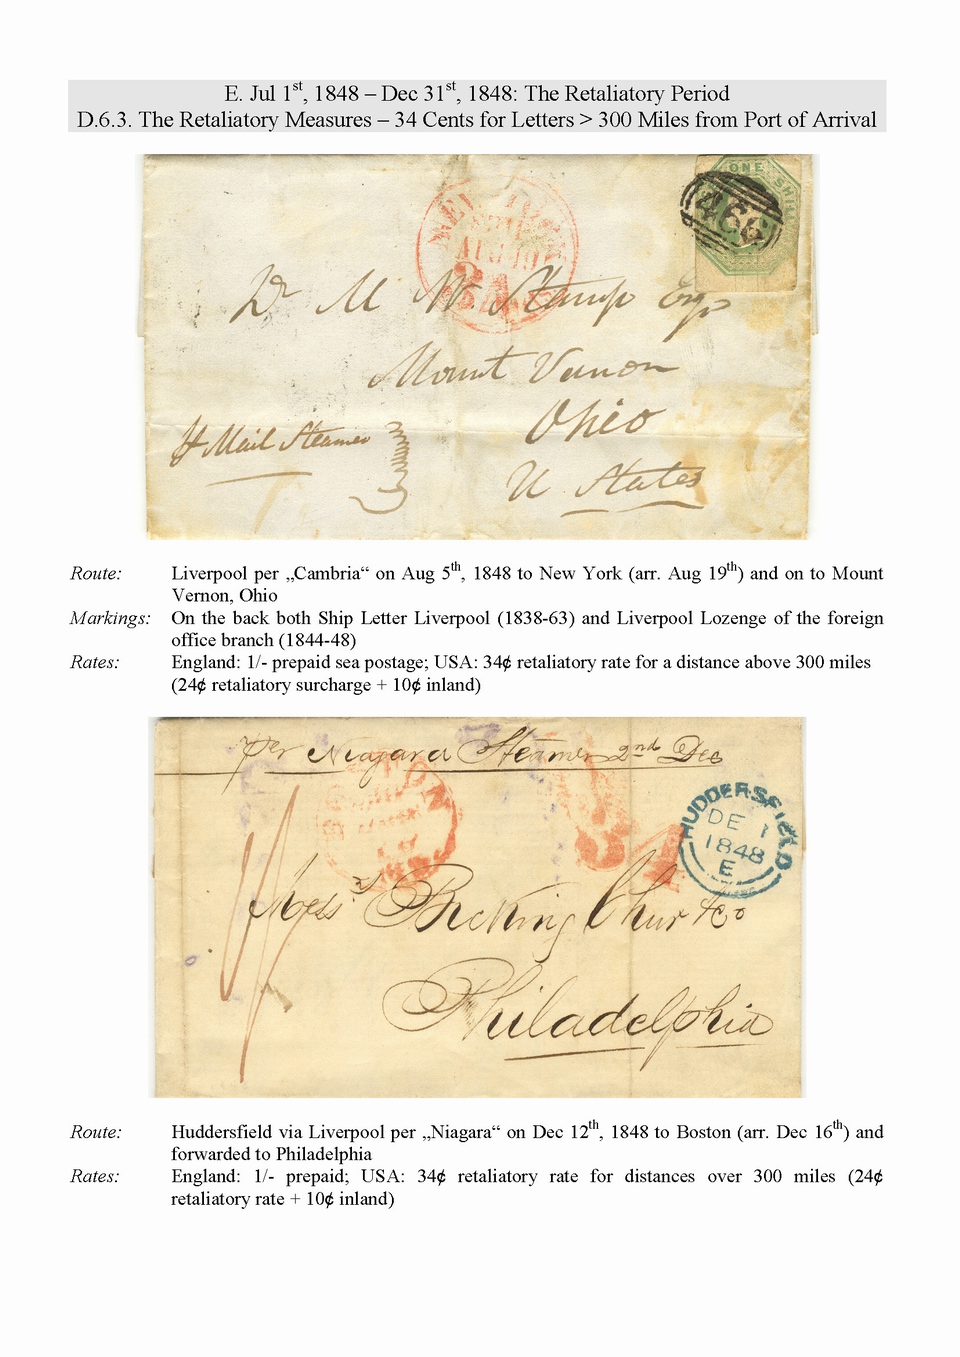 E. Jul 1st, 1848 – Dec 31st, 1848: The Retaliatory Period
D.6.3. The Retaliatory Measures – 34 Cents for Letters > 300 Miles from Port of Arrival
ONE SHILL
466
NEW YORK
AUG 19
34
Dr M W Stamp Esqr
Mount Vernon
Ohio
U States
Mail Steamer
Route: Liverpool per „Cambria“ on Aug 5th, 1848 to New York (arr. Aug 19th) and on to Mount
Vernon, Ohio
Markings: On the back both Ship Letter Liverpool (1838-63) and Liverpool Lozenge of the foreign
office branch (1844-48)
Rates: England: 1/- prepaid sea postage; USA: 34¢ retaliatory rate for a distance above 300 miles
(24¢ retaliatory surcharge + 10¢ inland)
per Niagara Steamer 2nd Dec
HUDDERSFIELD
DE 1
1848
E
34
Messrs
Philadelphia
Route: Huddersfield via Liverpool per „Niagara“ on Dec 12th, 1848 to Boston (arr. Dec 16th) and
forwarded to Philadelphia
Rates: England: 1/- prepaid; USA: 34¢ retaliatory rate for distances over 300 miles (24¢
retaliatory rate + 10¢ inland)